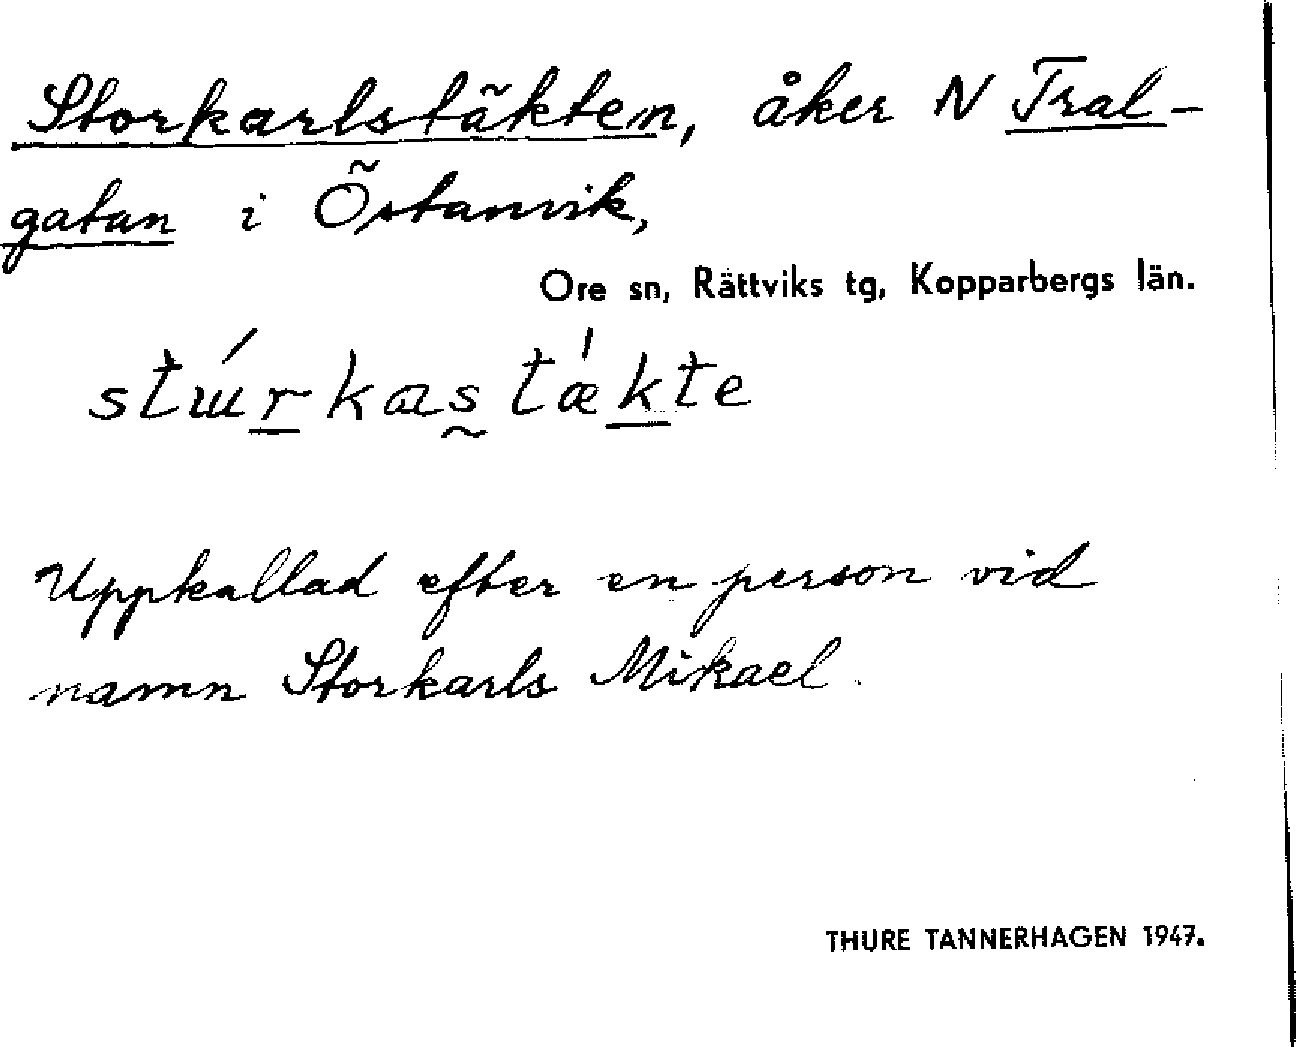 Storkarlstäkten, åker N Tral-
gatan i Östanvik,
Ore sn, Rättviks tg, Kopparbergs län.
Uppkallad efter en person vid
namn Storkarls Mikael.
THURE TANNERHAGEN 1947.